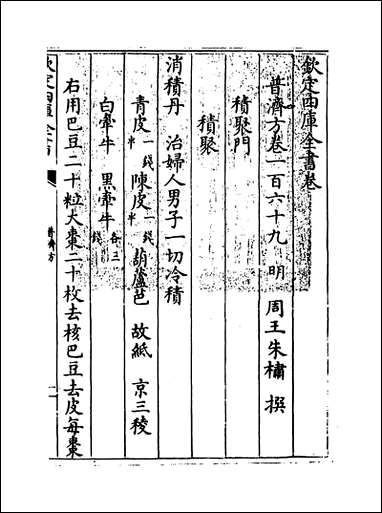 欽定四庫全書卷
普濟方卷一百六十九 明 周王朱橚 撰
積聚門
積聚
消積丹 治婦人男子一切冷積
青皮一錢半 陳皮一錢半 葫蘆芭 故紙 京三稜
白牽牛 黑牽牛各三錢
右用巴豆二十粒大棗二十枚去核巴豆去皮每棗
普濟方